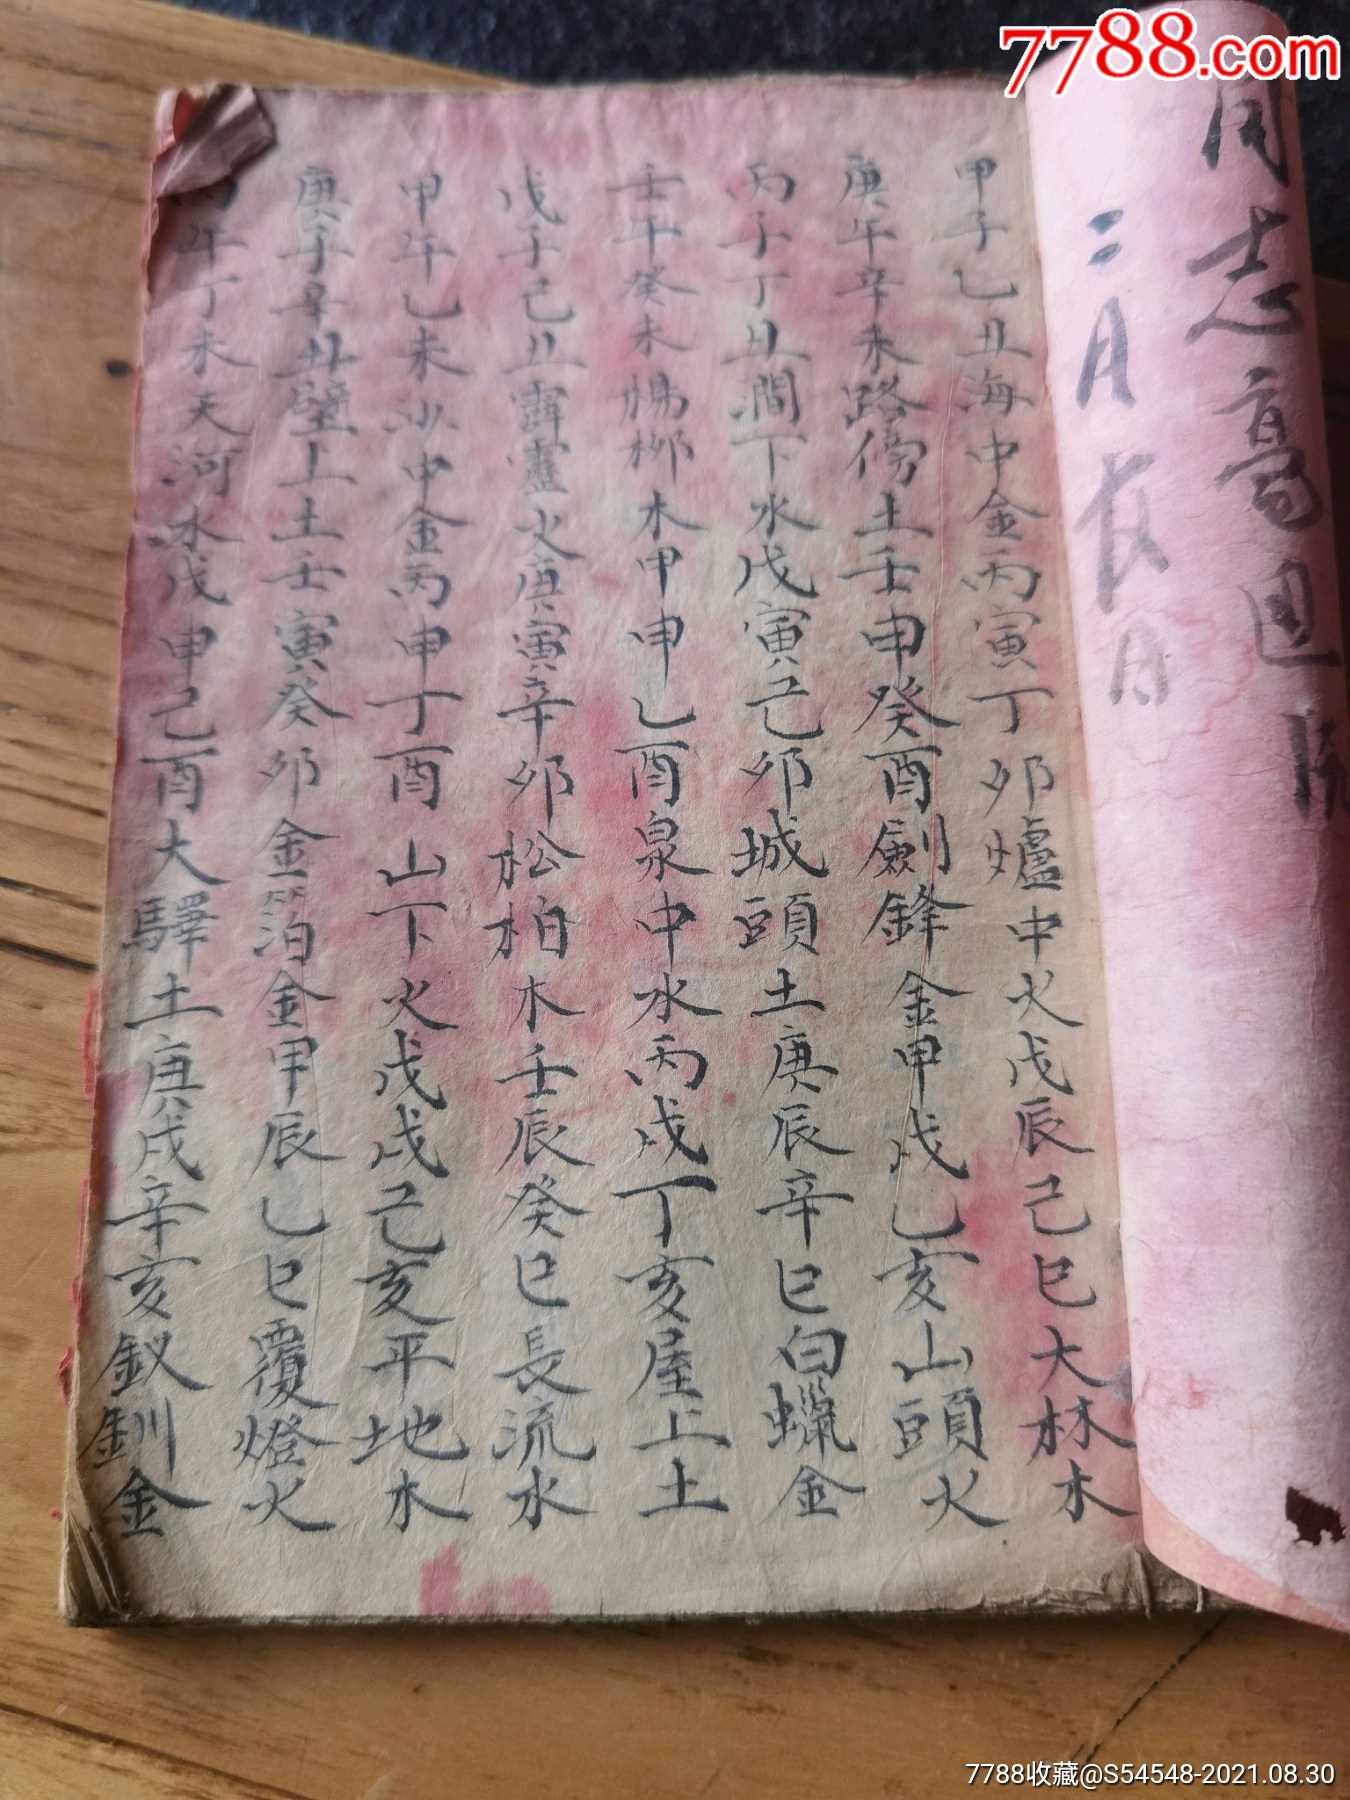 7788.com
志高
二月
甲子乙丑海中金丙寅丁卯爐中火戊辰己巳大林木
庚午辛未路傍土壬申癸酉劍鋒金甲戌乙亥山頭火
丙子丁丑澗下水戊寅己卯城頭土庚辰辛巳白蠟金
壬午癸未楊柳木甲申乙酉泉中水丙戌丁亥屋上土
戊子己丑霹靂火庚寅辛卯松柏木壬辰癸巳長流水
甲午乙未沙中金丙申丁酉山下火戊戌己亥平地木
庚子辛丑壁上土壬寅癸卯金箔金甲辰乙巳覆燈火
丙午丁未天河水戊申己酉大驛土庚戌辛亥釵釧金
7788收藏@S54548-2021.08.30